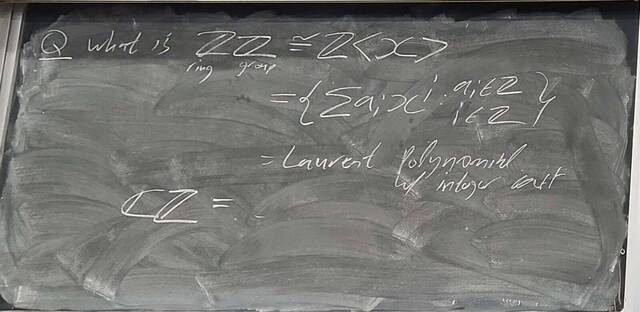 Q What is ℤℤ ≅ ℤ<x>
ring group
= { ∑aᵢxⁱ : aᵢ∈ℤ
i∈ℤ }
= Laurent Polynomial
w/ integer coeff
ℂℤ =